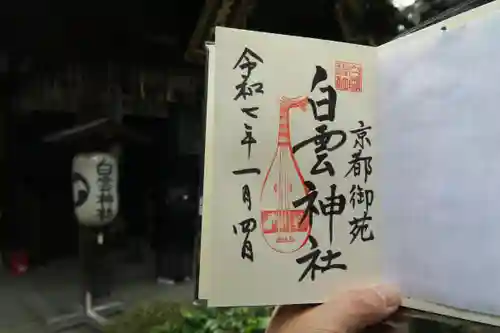 京都御苑
白雲神社
令和七年一月四日
白雲神社